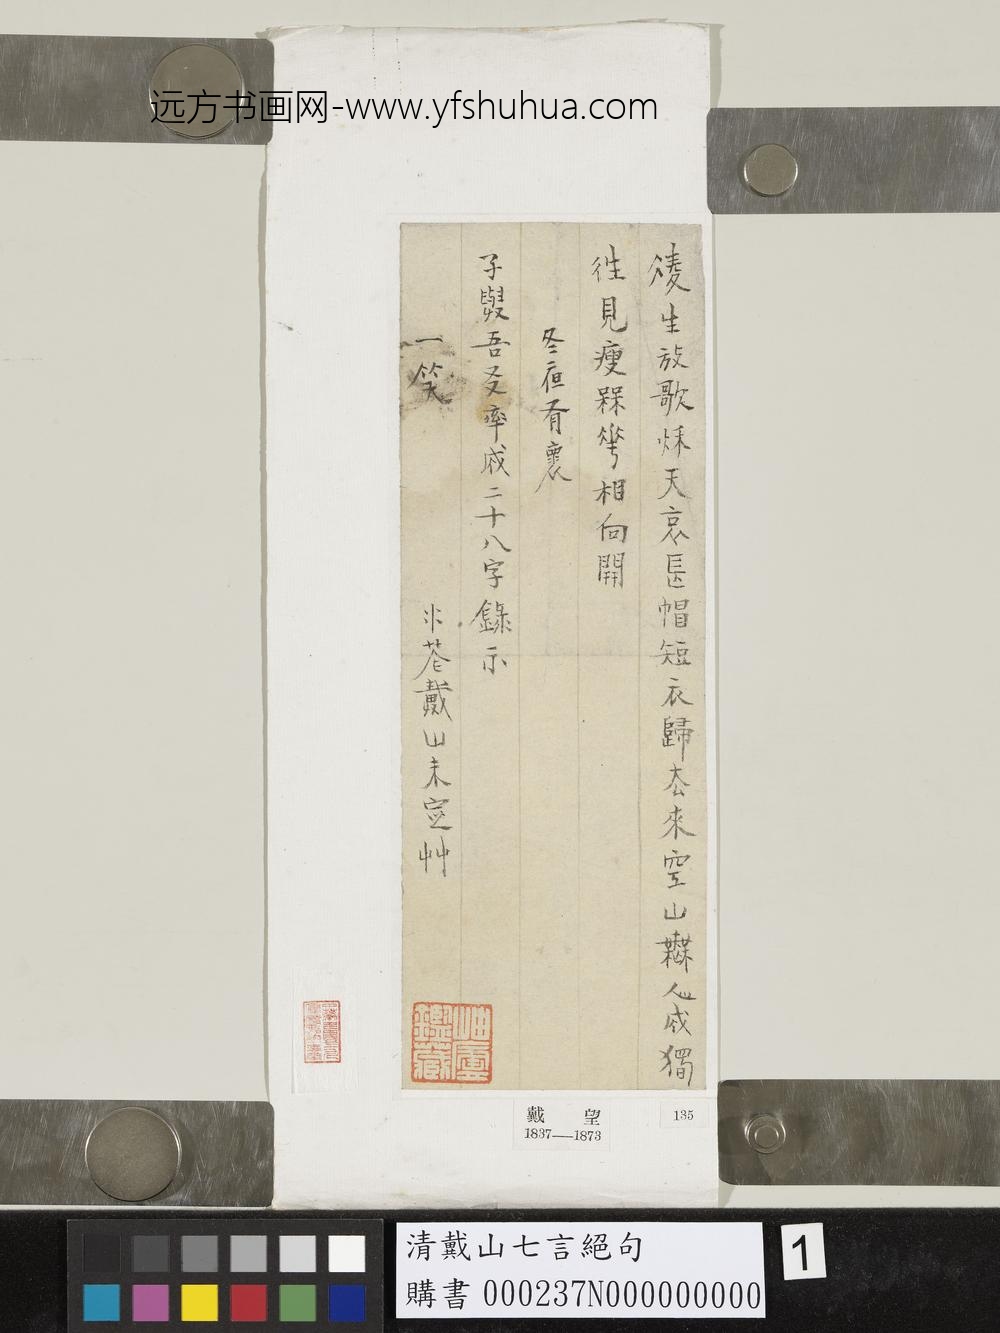 远方书画网-www.yfshuhua.com
生放歌秌天哀長帽短衣歸去來空山無人成獨
往見瘦槑華相向開
冬夜有褱
子與吾友率成二十八字錄示
一笑
戴山未定艸
岫廬鑑藏
戴望
1837—1873
135
清戴山七言絕句
購書 000237N000000000
1